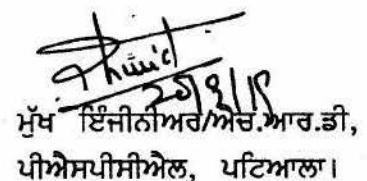 ਮੁੱਖ ਇੰਜੀਨੀਅਰ/ਐਚ.ਆਰ.ਡੀ,
ਪੀਐਸਪੀਸੀਐਲ, ਪਟਿਆਲਾ।